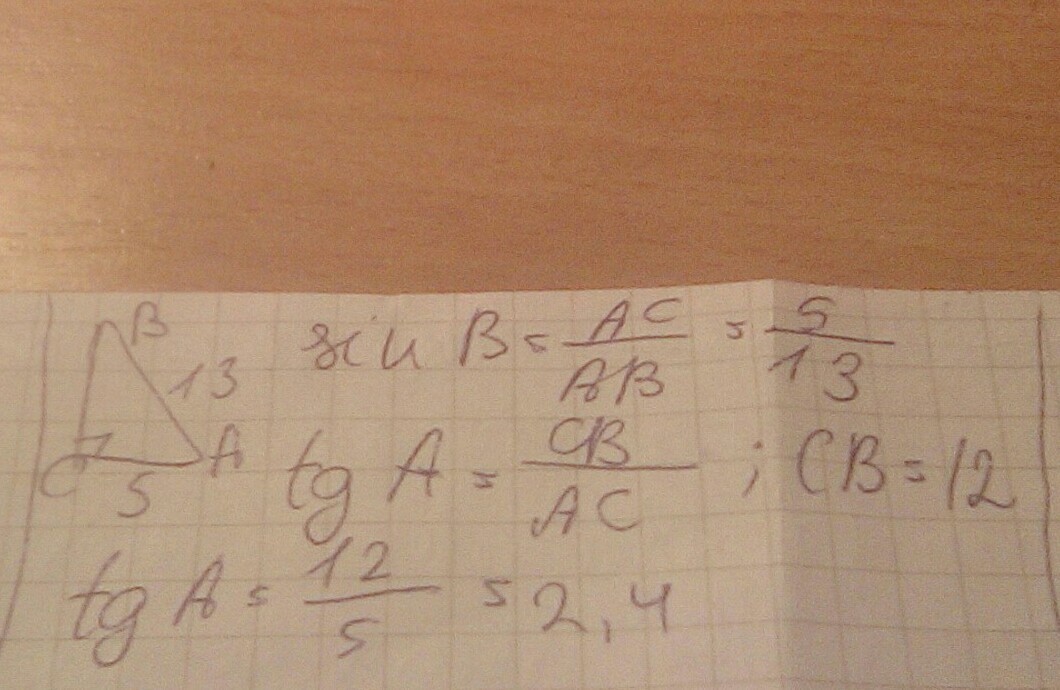 B
13
C
A
5
sin B = AC/AB = 5/13
tg A = CB/AC ; CB = 12
tg A = 12/5 = 2,4